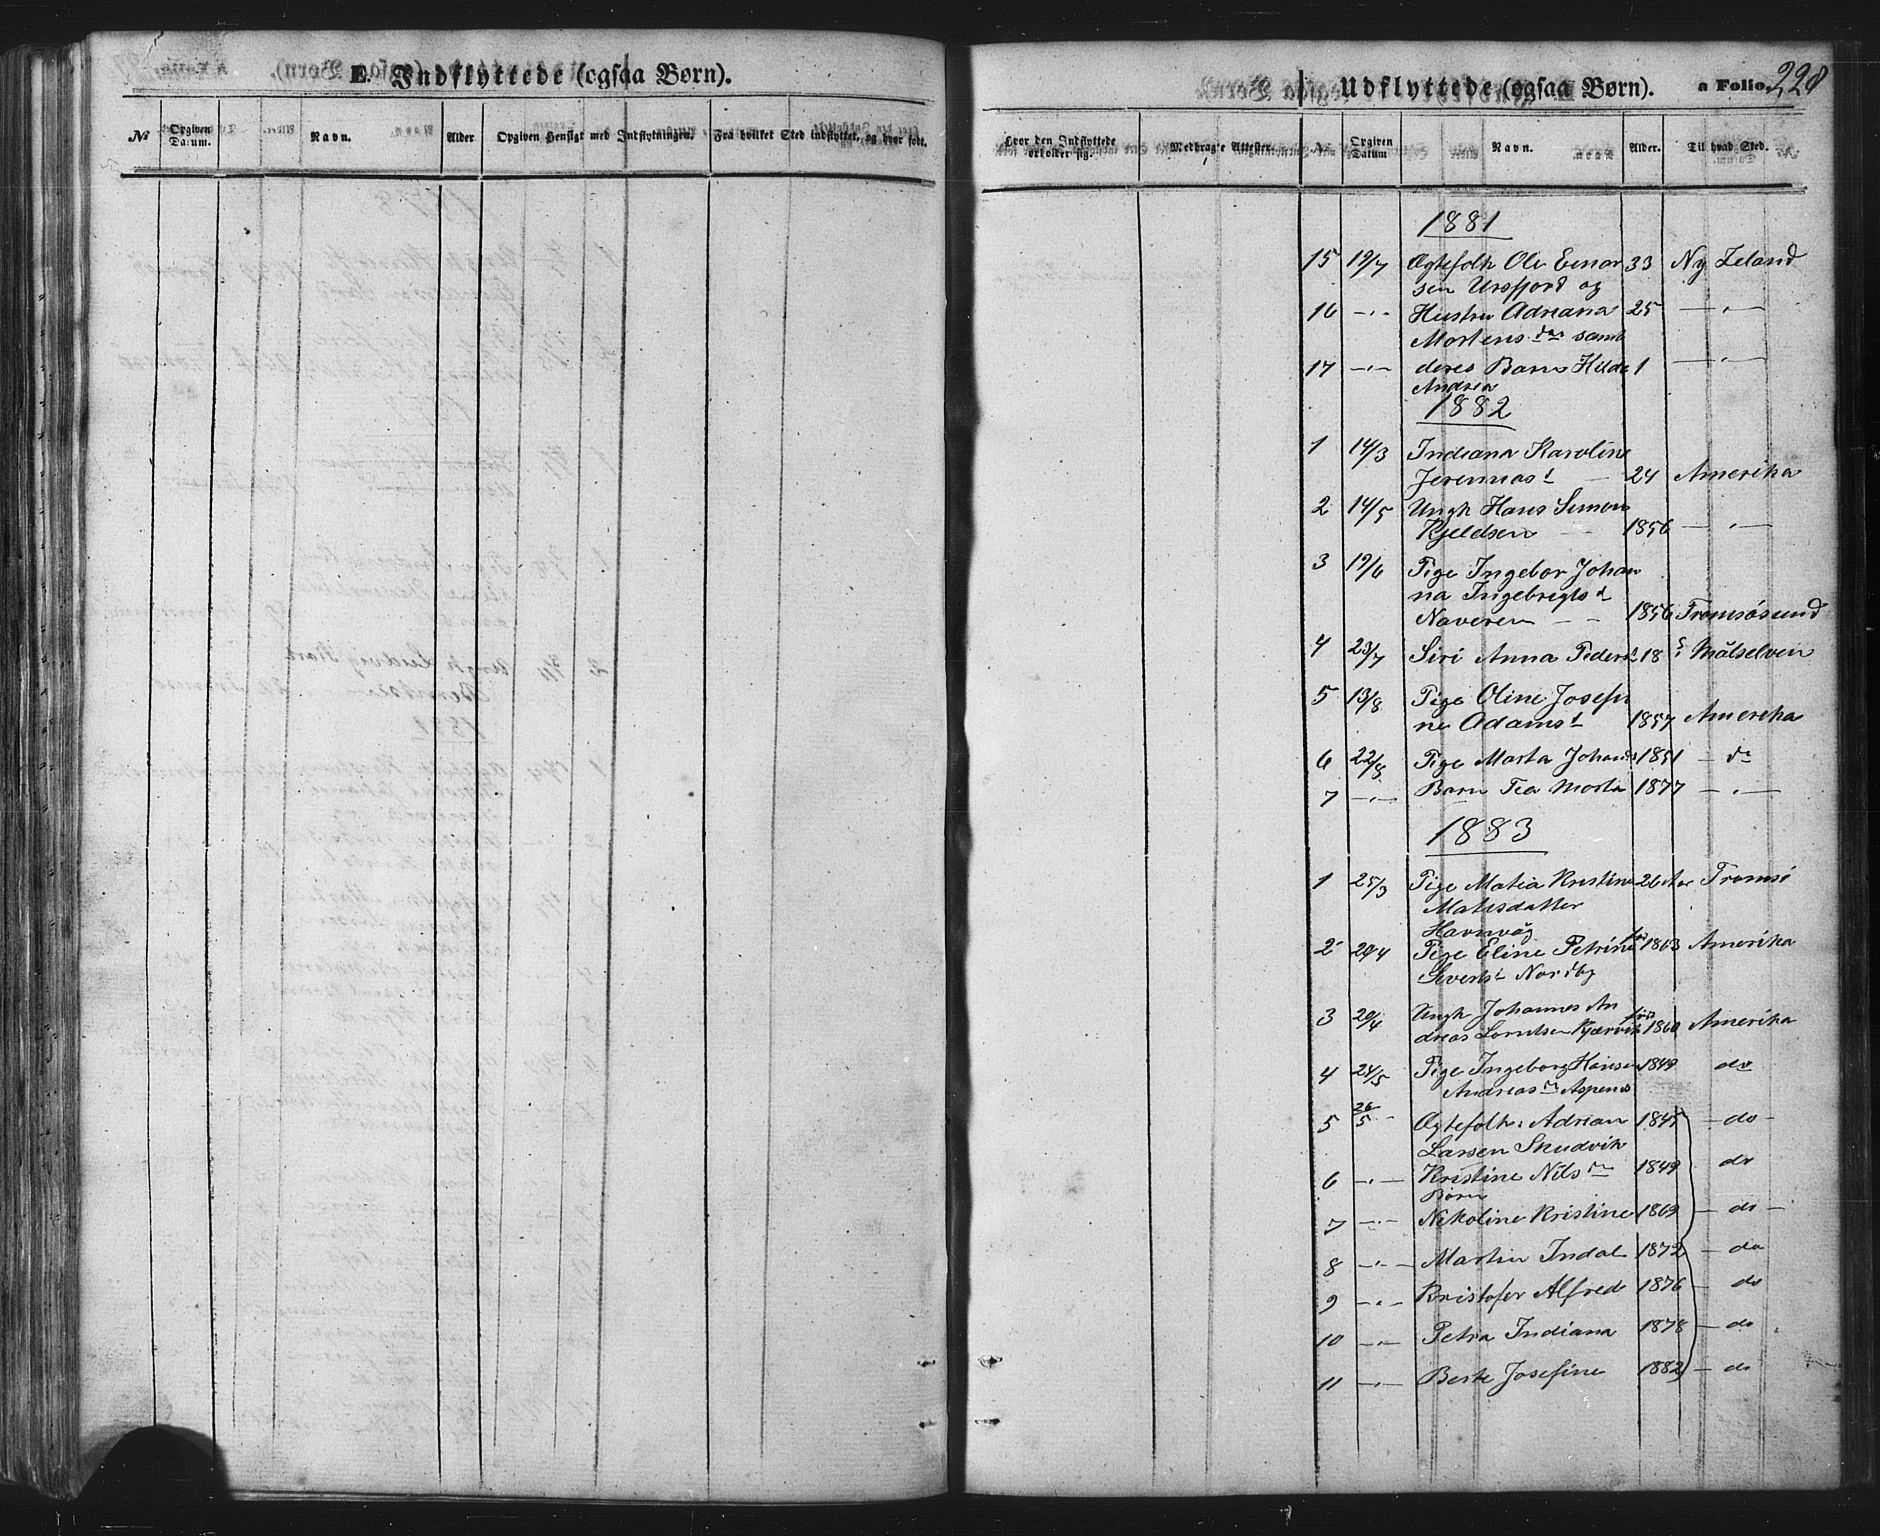 E. Indflyttede (ogsaa Børn).
№ Opgiven Datum. Navn. Alder Opgiven Hensigt med Indflytningen. Fra hvilket Sted indflyttet, og hvor født.
Udflyttede (ogsaa Børn). a Folio. 228
Hvor den Indflyttede opholder sig. Medbragte Attester. № Opgiven Datum Navn. Alder. Til hvad Sted.
1881
15 19/7 Ægtefolk Ole Einar 33 Ny Zeland
sen Ursfjord og
16 -"- Hustru Adriana 25 -"-
Mortensdtr samt
17 -"- deres Barn Hilda 1 -"-
Andrea
1882
1 14/3 Indiana Karoline
Jeremiasd 24 Amerika
2 14/5 Ungk Hans Simon
Kjeldsen 1856 -"-
3 19/6 Pige Ingebor Johan
na Ingebrigtsd
Naveren 1856 Tromsösund
4 23/7 Siri Anna Pedersd 18 Målselven
5 13/8 Pige Oline Josefi
ne Adamsd 1857 Amerika
6 22/8 Pige Marta Johans 1851 - do
7 -"- Barn Tea Marta 1877 -"-
1883
1 25/3 Pige Matia Kristine 26 Aar Tromsö
Matisdatter
Havnvåg
2 20/4 Pige Eline Petrine fød 1863 Amerika
Sivertsd Nordby
3 20/4 Ungk Johannes An
dreas Lorntsen Kjærvik fød 1860 Amerika
4 24/5 Pige Ingeborg Hansine 1849 do
Andreasdtr Aspenes
5 26/5 Ægtefolk: Adrian 1845 - do -
Larsen Skudvik
6 -"- Kristine Nilsdtr 1849 do
Børn
7 -"- Nikoline Kristine 1869 - do -
8 -"- Martin Indal 1872 - do
9 -"- Kristofer Alfred 1876 - do
10 -"- Petra Indiana 1878 - do
11 -"- Berte Josefine 1882 - do